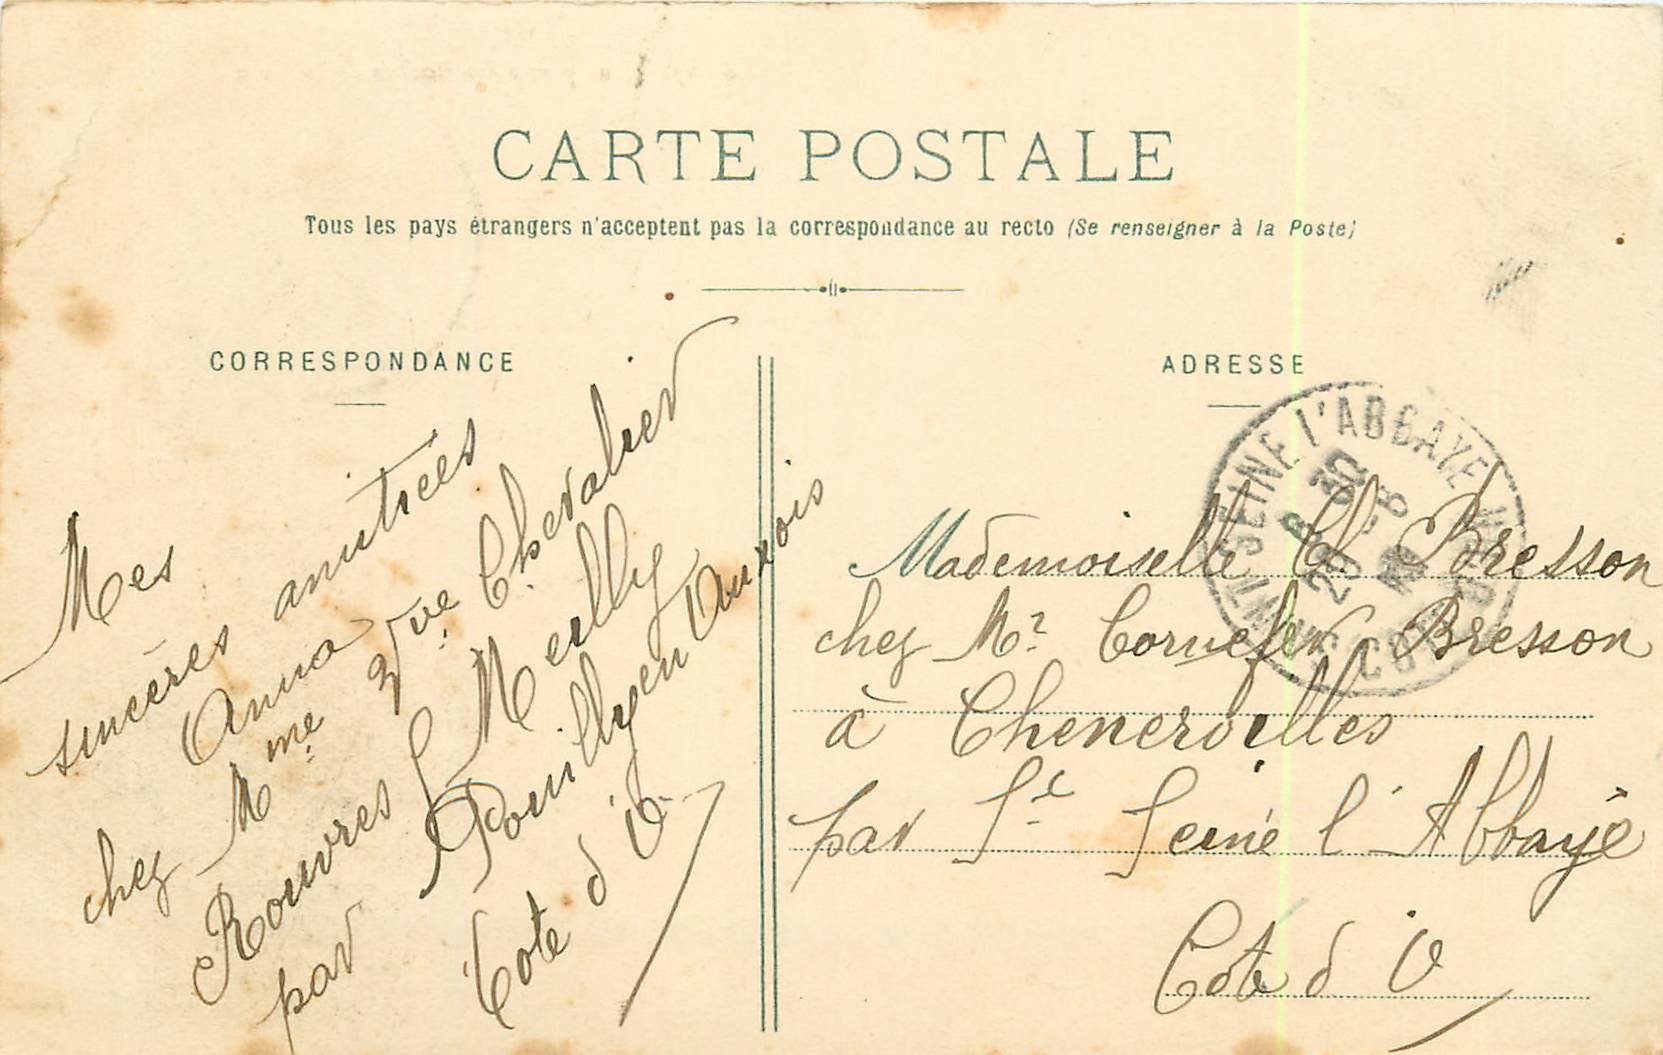 CARTE POSTALE
Tous les pays étrangers n'acceptent pas la correspondance au recto (Se renseigner à la Poste)
CORRESPONDANCE
Mes
sincères amitiés
Anna
chez Mme Vve Chevalier
Rouvres S Meilly
par Pouilly en Auxois
Cote d'O
ADRESSE
ST SEINE l'ABBAYE
COTE D'OR
8 30
29 -8
Mademoiselle Cl. Bresson
chez Mr Cornefer Bresson
à Chenerilles
par St Seine l'Abbaye
Cote d O